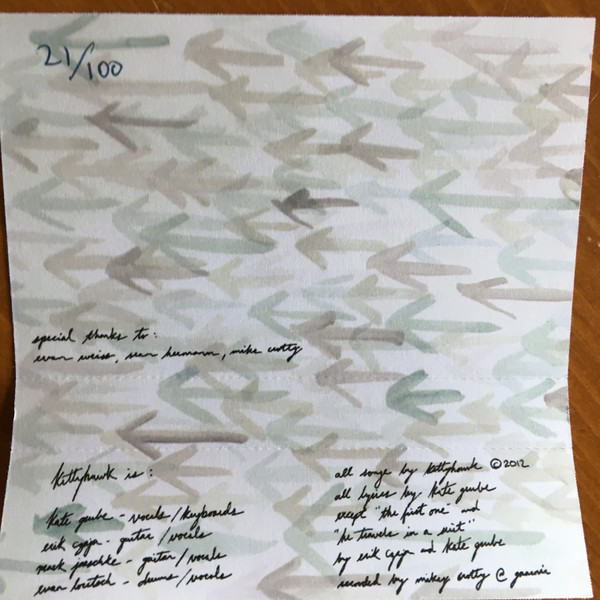 21/100
special thanks to:
evan weiss, sean hermann, mike crotty
kittyhawk is:
kate grube - vocals/keyboards
erik czaja - guitar/vocals
mark jaeschke - guitar/vocals
evan loritsch - drums/vocals
all songs by kittyhawk ©2012
all lyrics by kate grube
except "the first one" and
"he travels in a suit"
by erik czaja and kate grube
recorded by mikey crotty @